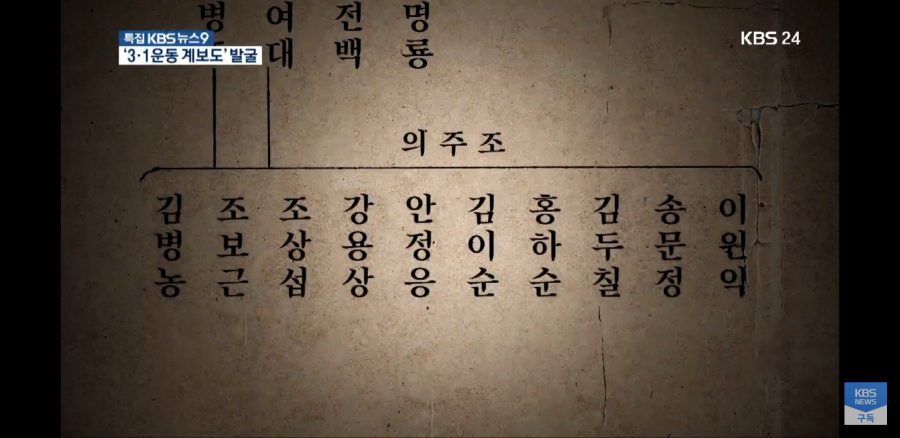 특집 KBS 뉴스9
'3·1운동 계보도' 발굴
KBS 24
병
여대
전백
명룡
의주조
김병농
조보근
조상섭
강용상
안정응
김이순
홍하순
김두칠
송문정
이원익
KBS
NEWS
구독